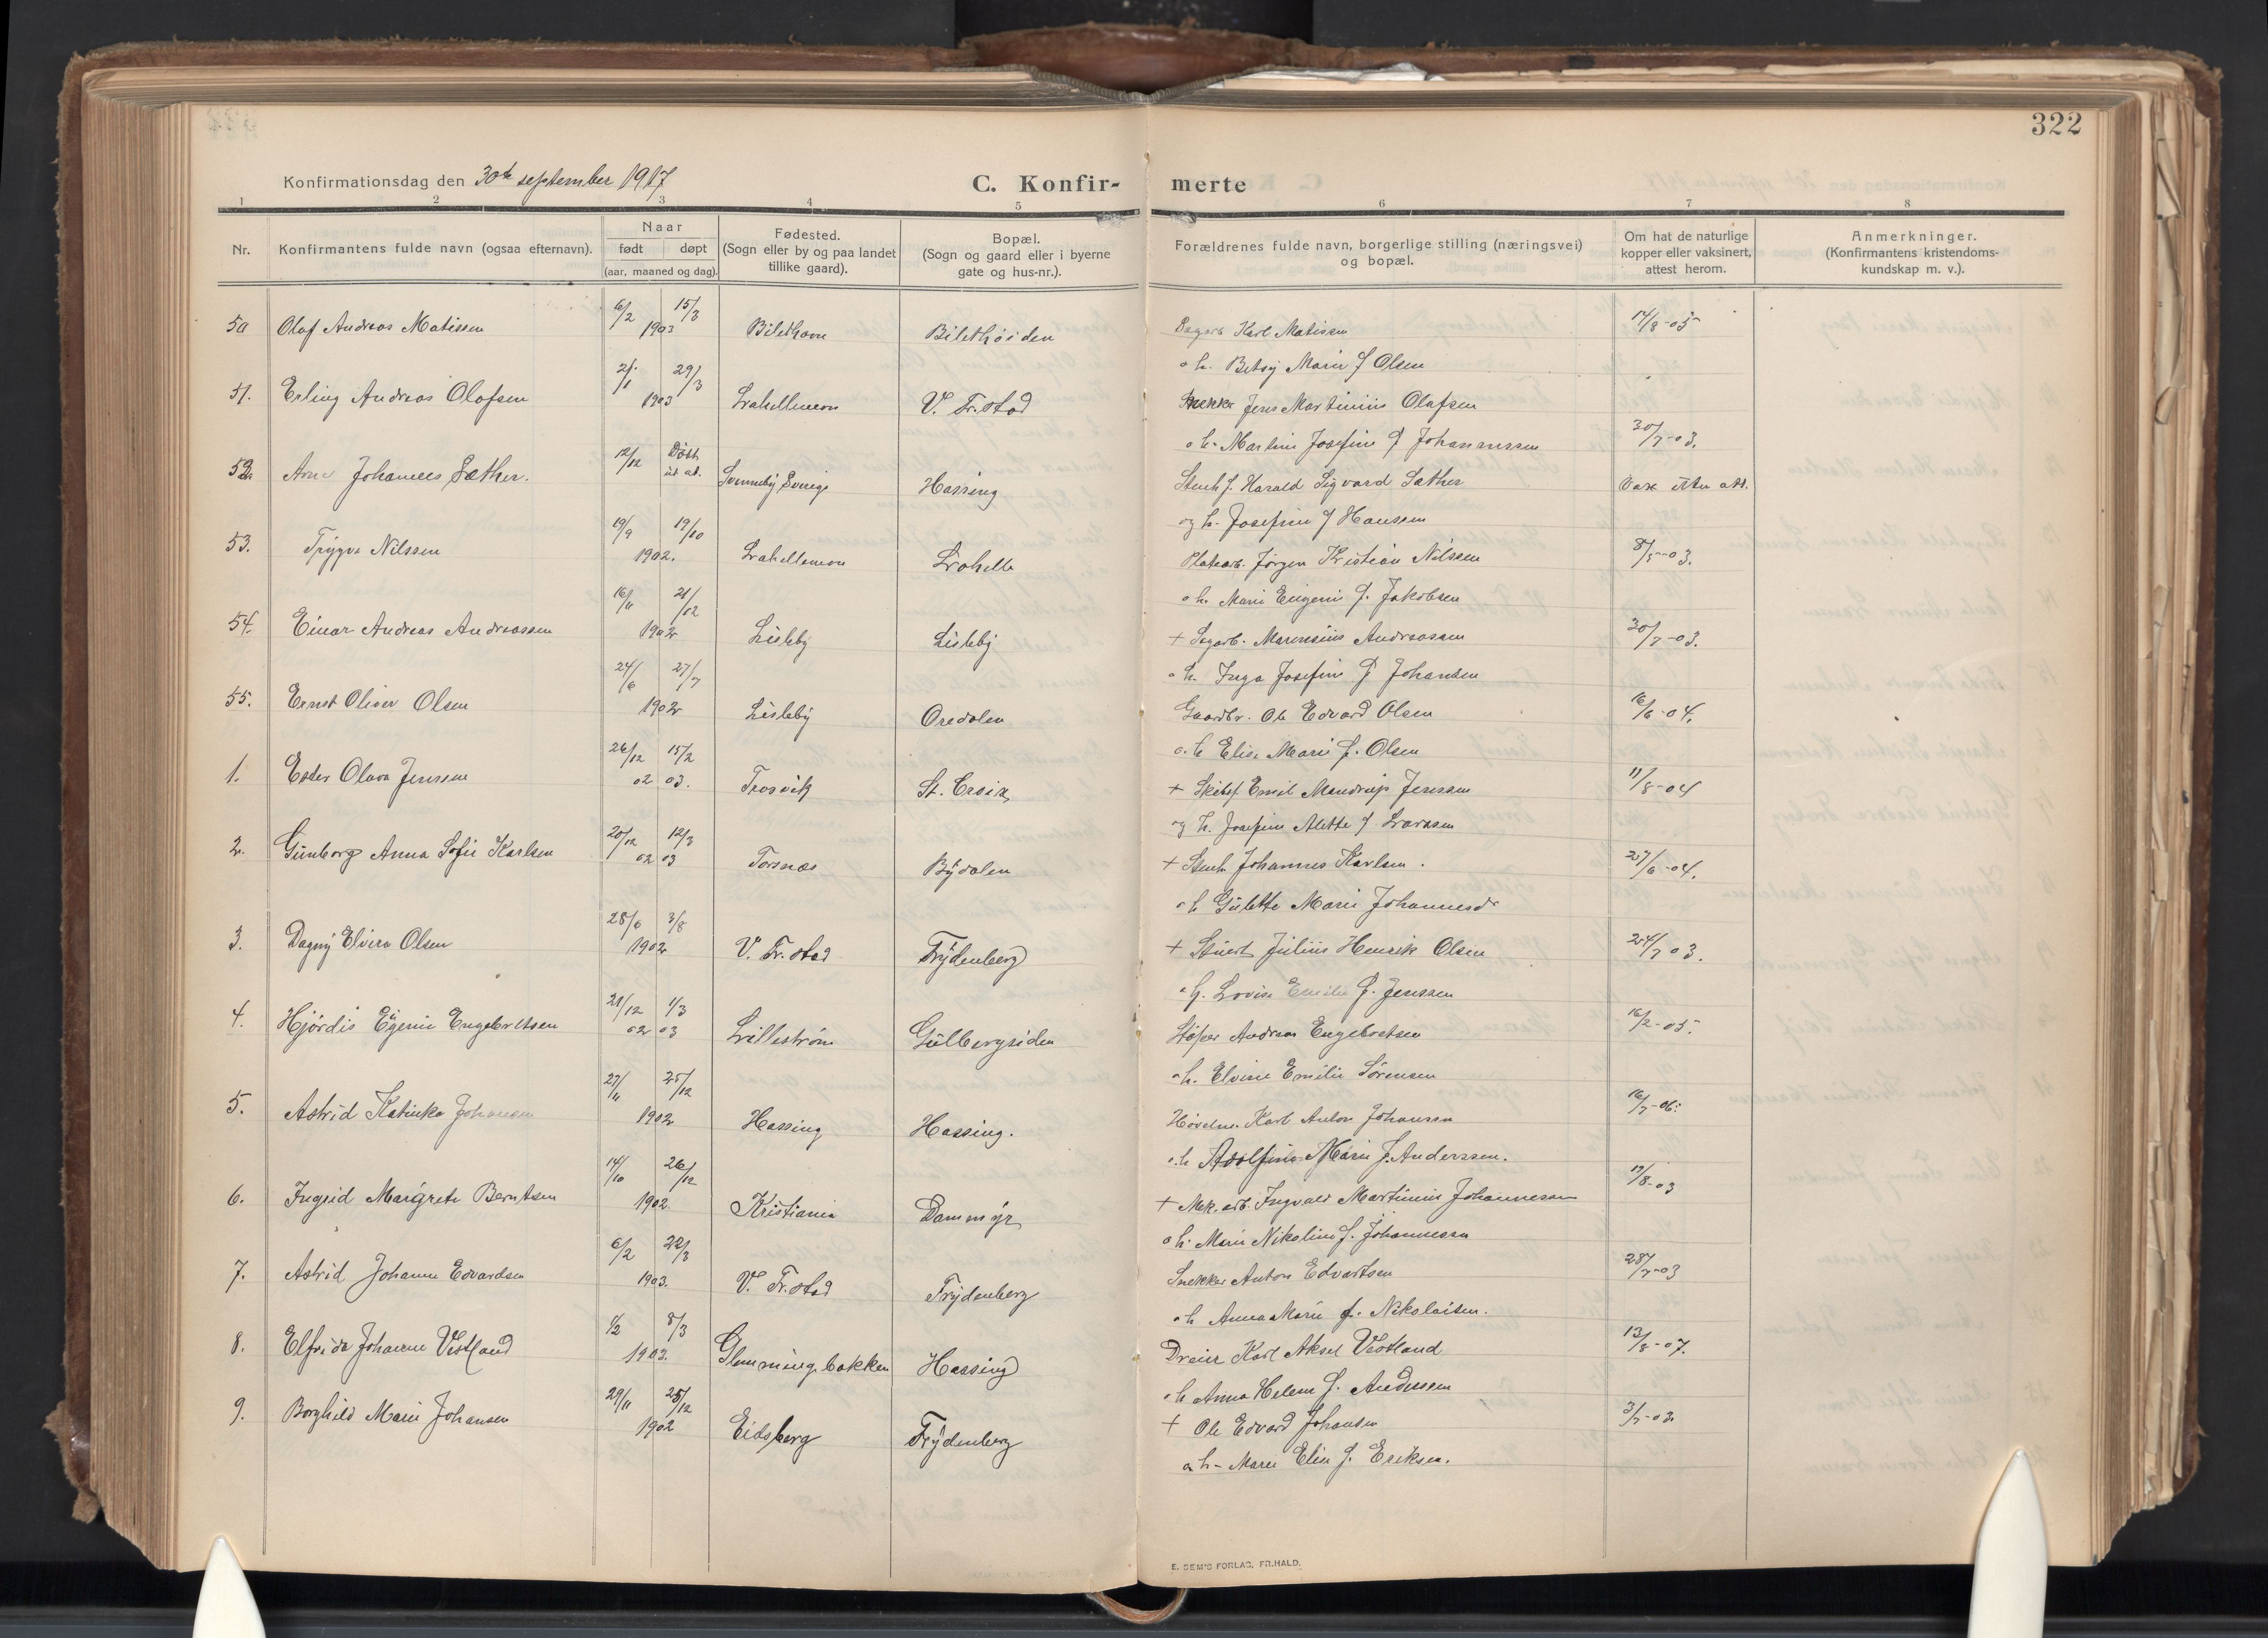 322
Konfirmationsdag den 30te september 1917
C. Konfir- merte
1 2 3 4 5 6 7 8
Nr.
Konfirmantens fulde navn (ogsaa efternavn).
Naar
født døpt
(aar, maaned og dag).
Fødested.
(Sogn eller by og paa landet
tillike gaard).
Bopæl.
(Sogn og gaard eller i byerne
gate og hus-nr.).
Forældrenes fulde navn, borgerlige stilling (næringsvei)
og bopæl.
Om hat de naturlige
kopper eller vaksinert,
attest herom.
Anmerkninger.
(Konfirmantens kristendoms-
kundskap m. v.).
50 Olaf Andreas Matissen 6/2 15/3 1903 Bilethøiden Karl Matissen 14/8-05
o h. Betsy Marie f Olsen
51. Erling Andreas Olafsen 29/3 1903 V. Fr.stad Snekker Jens Martinius Olafsen
o h. Martine Josefine f Johannessen 30/7-03.
52. Arne Johannes Sæther. 12/12 Hassing Stenh f. Harald Sigvard Sæther
og h. Josefine f Hansen
53. Trygve Nilssen 19/9 19/10 1902. Platearb. Jørgen Kristian Nilssen 8/5-03.
o h. Marie Eugenie f. Jakobsen
54. Einar Andreas Andreassen 16/11 21/12 1902 Lisleby Lisleby + Sagarb. Marensius Andreassen 30/7-03.
o h. Inga Josefine f Johansen
55. Ernst Oliver Olsen 24/6 27/7 1902 Lisleby Oredalen Gaardbr. Ole Edvard Olsen 16/6-04.
o. h Elise Marie f. Olsen
1. Ester Olava Jenssen 26/12 02 15/2 03. Trosvik St. Croix + Emil Mandrup Jenssen 11/8-04
og h. Josefine Alette f Larssen
2. Gunborg Anna Sofie Karlsen 20/12 02 12/3 03 Torsnæs Bydalen + Stenh. Johannes Karlsen. 27/6-04.
o h Gulette Marie Johannesdr
3. Dagny Elvira Olsen 28/6 3/8 1902 V. Fr.stad Frydenberg + Stuert Julius Henrik Olsen 24/7 03.
o h. Lovise Emilie f. Jenssen
4. Hjørdis Egenie Engebretsen 21/12 02 1/3 03 Lillestrøm Gulbergsiden Støper Andreas Engebretsen 16/2-05.
o h. Elvine Emilie Sørensen
5. Astrid Katinka Johansen 27/11 25/12 1902 Hassing Hassing. Karl Anton Johansen 16/7-06.
o. h Adolfine Marie f. Anderssen.
6. Ingrid Margrete Berntsen 14/10 26/12 1902 Kristiania Dammyr + Mek. arb. Ingvald Martinius Johannessen 19/8-03
o h. Marie Nikoline f. Johannessen
7. Astrid Johanne Edvardsen 6/2 22/3 1903. V. Fr.stad Frydenberg Snekker Anton Edvartsen 28/7-03
o h Anna Marie f. Nikolaisen.
8. Elfrida Johanne Vestland 1/2 8/3 1903. Glemminge bakken Hassing Dreier Karl Aksel Vestland 13/8-07.
o h Anna Helene f. Anderssen
9. Borghild Marie Johansen 29/11 25/12 1902 Eidsberg Frydenberg + Ole Edvard Johansen 3/7-03
o h- Maren Elin f. Eriksen.
E. SEM'S FORLAG, FR.HALD.